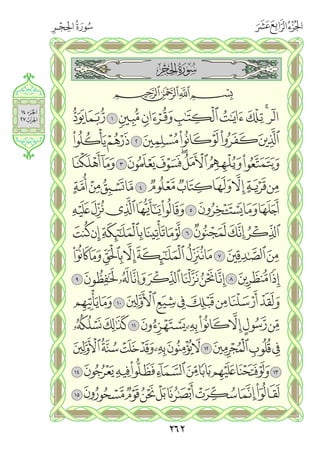 الجزء الرابع عشر
سورة الحجر
سورة الحجر
بسم الله الرحمن الرحيم
الٓر ۚ تِلْكَ ءَايَٰتُ ٱلْكِتَٰبِ وَقُرْءَانٍ مُّبِينٍ ١ رُّبَمَا يَوَدُّ
ٱلَّذِينَ كَفَرُوا۟ لَوْ كَانُوا۟ مُسْلِمِينَ ٢ ذَرْهُمْ يَأْكُلُوا۟
وَيَتَمَتَّعُوا۟ وَيُلْهِهِمُ ٱلْأَمَلُ ۖ فَسَوْفَ يَعْلَمُونَ ٣ وَمَآ أَهْلَكْنَا
مِن قَرْيَةٍ إِلَّا وَلَهَا كِتَابٌ مَّعْلُومٌ ٤ مَّا تَسْبِقُ مِنْ أُمَّةٍ
أَجَلَهَا وَمَا يَسْتَـْٔخِرُونَ ٥ وَقَالُوا۟ يَٰٓأَيُّهَا ٱلَّذِى نُزِّلَ عَلَيْهِ
ٱلذِّكْرُ إِنَّكَ لَمَجْنُونٌ ٦ لَّوْ مَا تَأْتِينَا بِٱلْمَلَٰٓئِكَةِ إِن كُنتَ
مِنَ ٱلصَّٰدِقِينَ ٧ مَا نُنَزِّلُ ٱلْمَلَٰٓئِكَةَ إِلَّا بِٱلْحَقِّ وَمَا كَانُوٓا۟
إِذًا مُّنظَرِينَ ٨ إِنَّا نَحْنُ نَزَّلْنَا ٱلذِّكْرَ وَإِنَّا لَهُۥ لَحَٰفِظُونَ ٩
وَلَقَدْ أَرْسَلْنَا مِن قَبْلِكَ فِى شِيَعِ ٱلْأَوَّلِينَ ١٠ وَمَا يَأْتِيهِم
مِّن رَّسُولٍ إِلَّا كَانُوا۟ بِهِۦ يَسْتَهْزِءُونَ ١١ كَذَٰلِكَ نَسْلُكُهُۥ
فِى قُلُوبِ ٱلْمُجْرِمِينَ ١٢ لَا يُؤْمِنُونَ بِهِۦ ۖ وَقَدْ خَلَتْ سُنَّةُ ٱلْأَوَّلِينَ
١٣ وَلَوْ فَتَحْنَا عَلَيْهِم بَابًا مِّنَ ٱلسَّمَآءِ فَظَلُّوا۟ فِيهِ يَعْرُجُونَ ١٤
لَقَالُوٓا۟ إِنَّمَا سُكِّرَتْ أَبْصَٰرُنَا بَلْ نَحْنُ قَوْمٌ مَّسْحُورُونَ ١٥
الجزء ١٤
الحزب ٢٧
٢٦٢